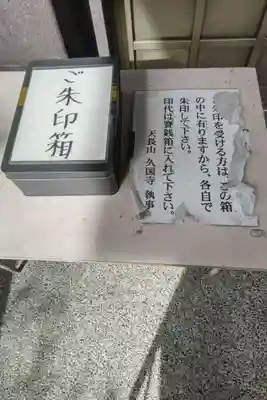 ご朱印箱
朱印を受ける方は、この箱
の中に有りますから、各自で
朱印して下さい。
印代は賽銭箱に入れて下さい。
天長山 久国寺 執事